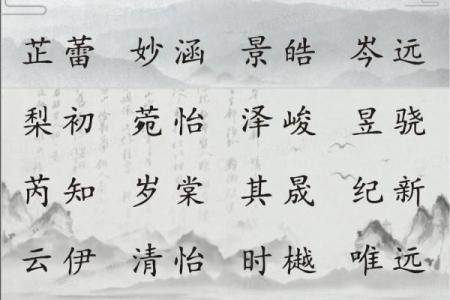 芷蕾 妙涵 景皓 岑远
梨初 菀怡 泽峻 昱骁
芮知 岁棠 其晟 纪新
云伊 清怡 时樾 唯远